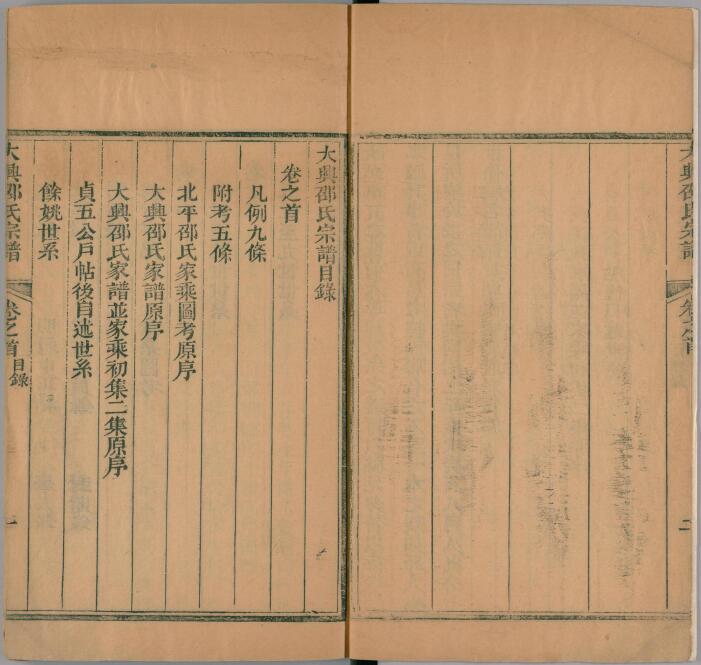 大興邵氏宗譜
卷之首
二
大興邵氏宗譜目錄
卷之首
凡例九條
附考五條
北平邵氏家乘圖考原序
大興邵氏家譜原序
大興邵氏家譜並家乘初集二集原序
貞五公戶帖後自述世系
餘姚世系
大興邵氏宗譜
卷之首
目錄